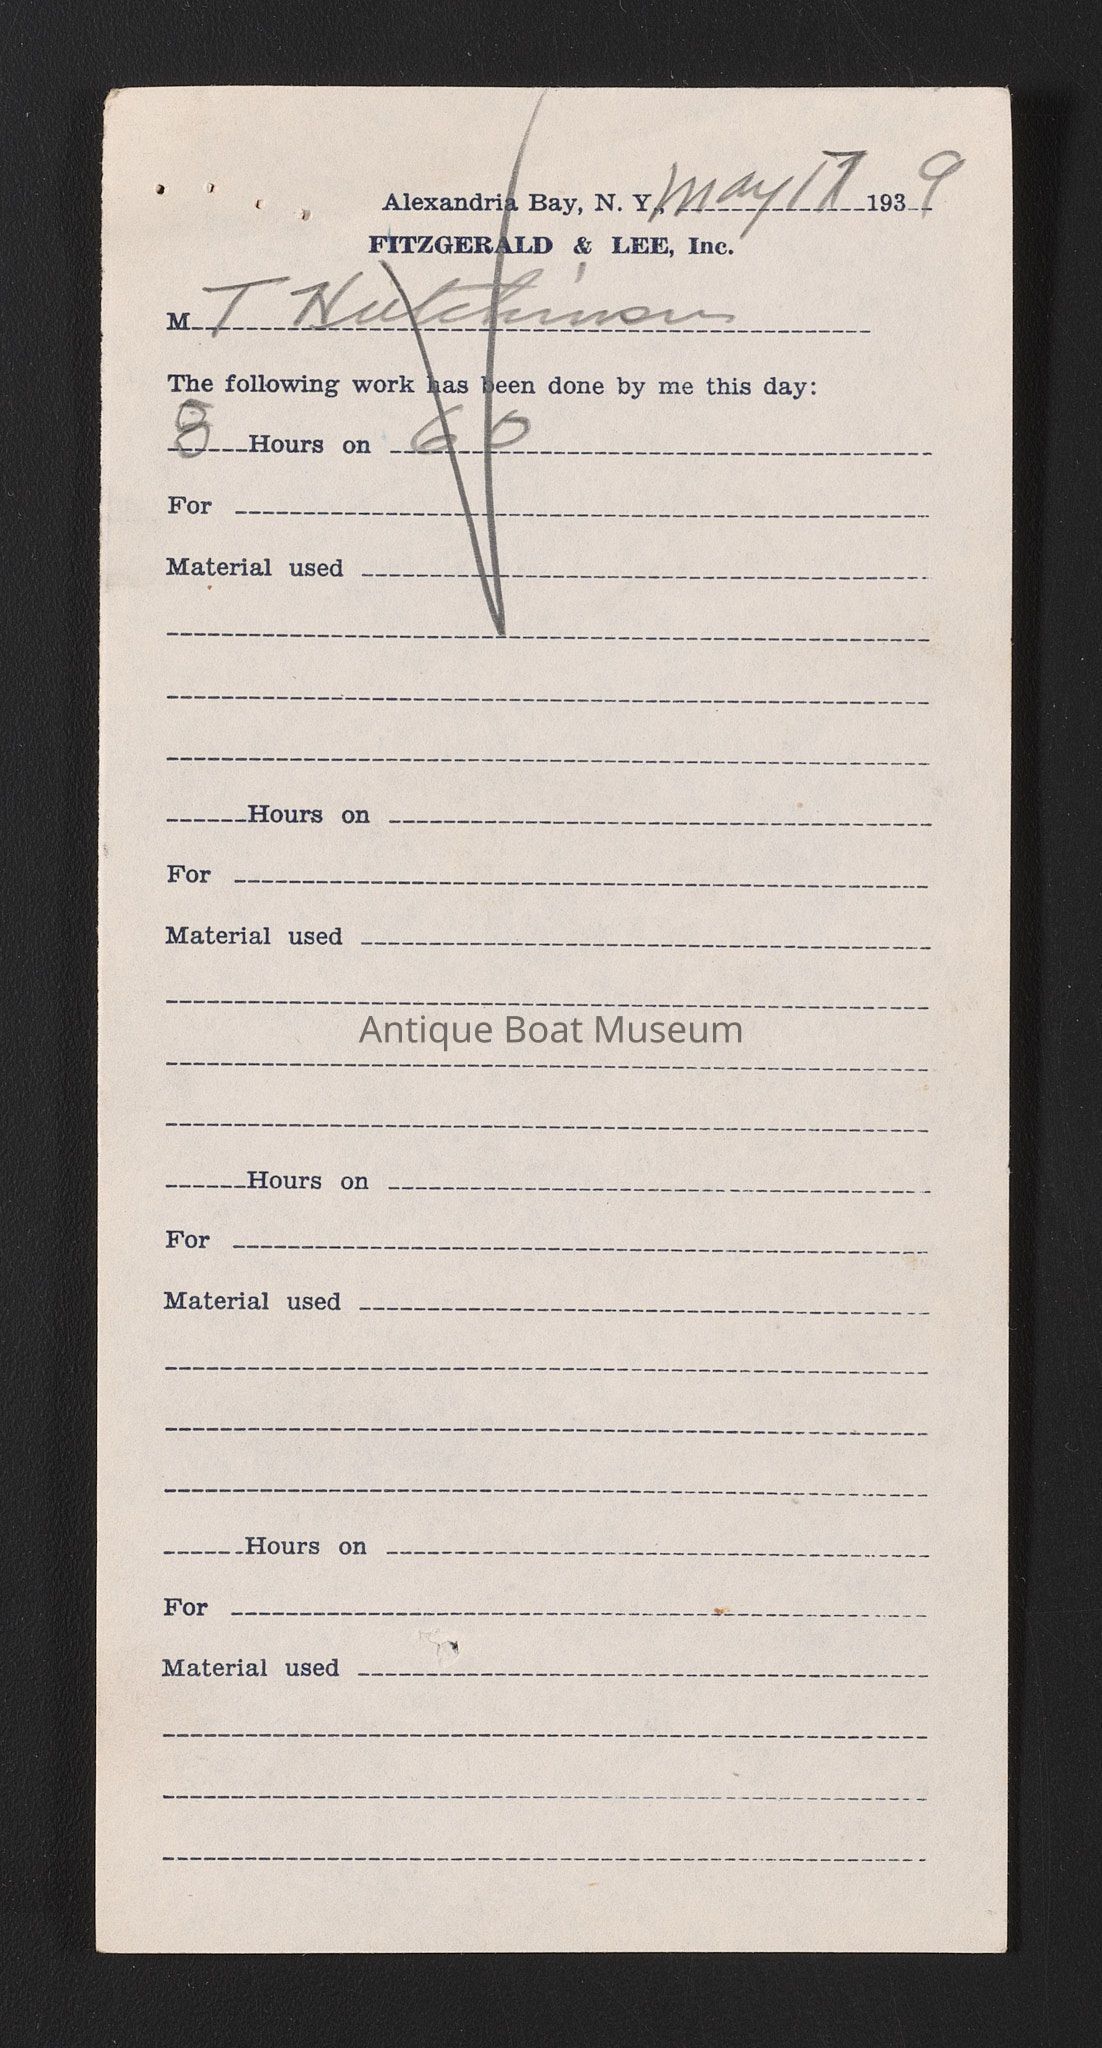 Alexandria Bay, N. Y., May 17 1939
FITZGERALD & LEE, Inc.
M T Hutchinson
The following work has been done by me this day:
8 Hours on 60
For
Material used
Hours on
For
Material used
Antique Boat Museum
Hours on
For
Material used
Hours on
For
Material used